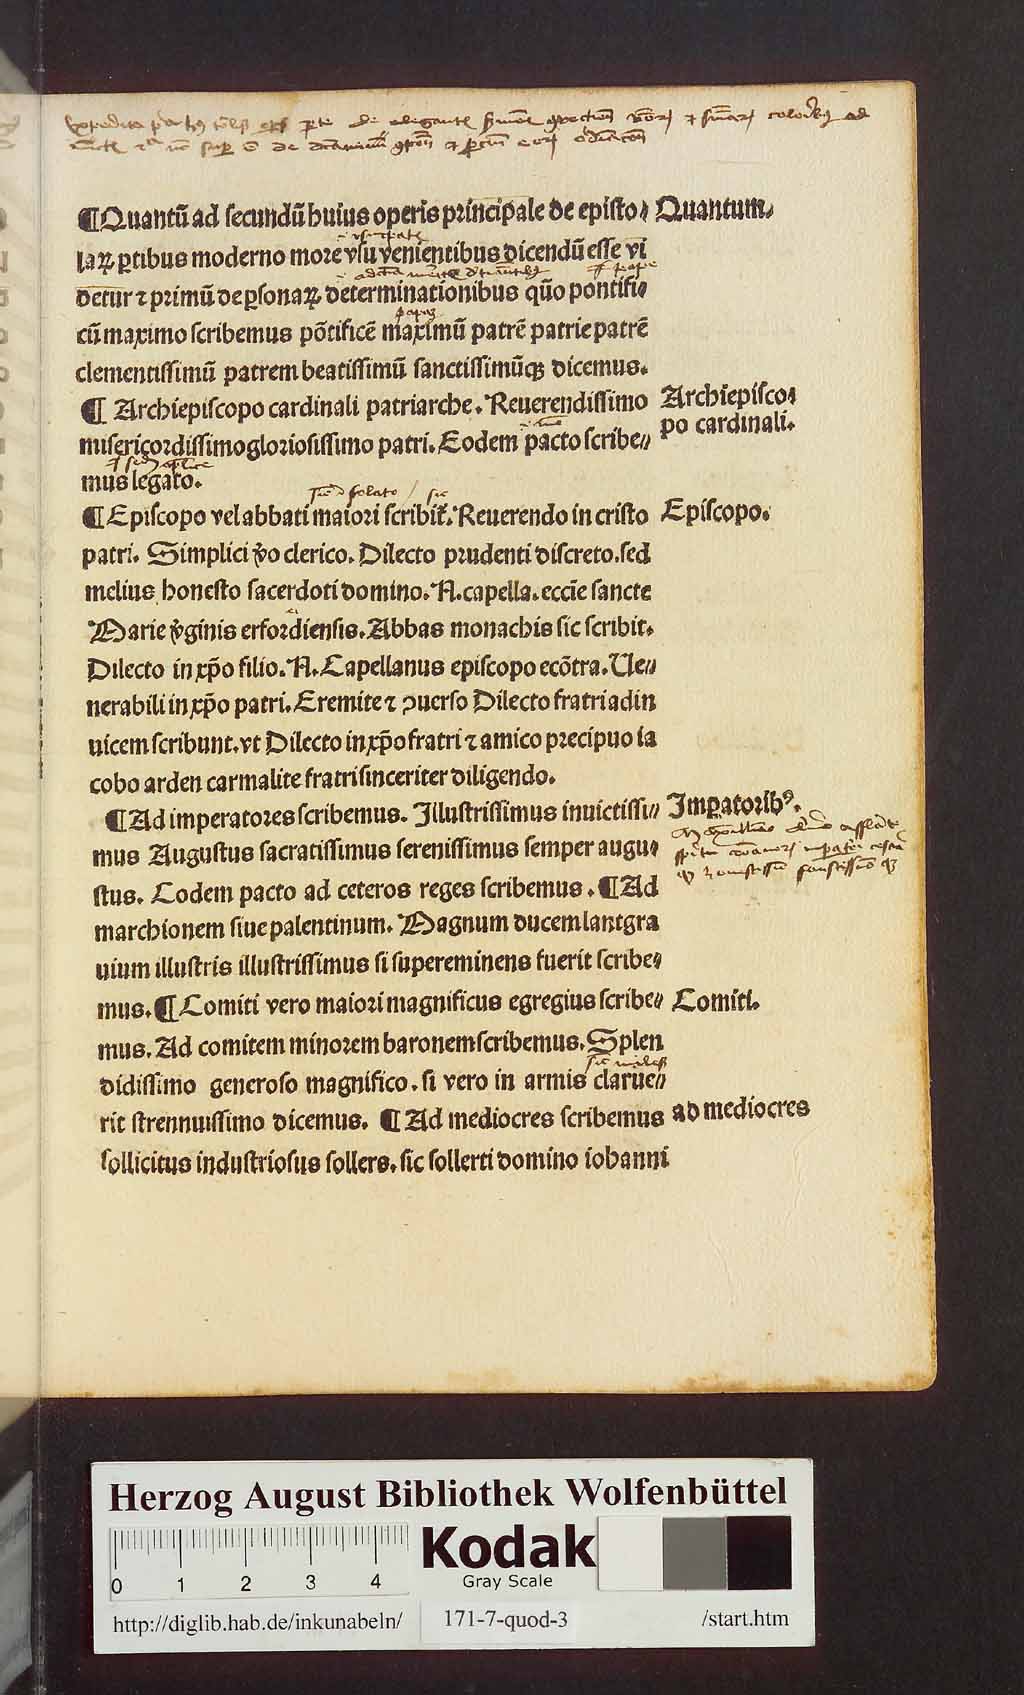 ¶Quantū ad secundū huius operis principale de episto⸗ Quantum⸗
laꝝ ꝑtibus moderno more vsu venientibus dicendū esse vi
detur ⁊ primū de ꝑsonaꝝ determinationibus qūo pontifi⸗
cū maximo scribemus pōtificē maximū patrē patrie patrē
clementissimū patrem beatissimū sanctissimūqꝫ dicemus.
¶ Archiepiscopo cardinali patriarche. Reuerendissimo Archiepisco⸗
misericordissimogloriosissimo patri. Eodem pacto scribe⸗ po cardinali.
mus legato.
¶Episcopo vel abbati maiori scribit᷑. Reuerendo in cristo Episcopo.
patri. Simplici v̄o clerico. Dilecto prudenti discreto. sed
melius honesto sacerdoti domino. N. capella. eccīe sancte
Marie v̄ginis erfordiensis. Abbas monachis sic scribit.
Dilecto in xp̄o filio. N. Capellanus episcopo ecōtra. Ue⸗
nerabili in xp̄o patri. Eremite ⁊ ꝯuerso Dilecto fratri adin
uicem scribunt. vt Dilecto in xp̄o fratri ⁊ amico precipuo ia
cobo arden carmalite fratri sinceriter diligendo.
¶Ad imperatores scribemus. Illustrissimus inuictissi⸗ Imꝑatoribꝰ.
mus Augustus sacratissimus serenissimus semper augu⸗
stus. Codem pacto ad ceteros reges scribemus. ¶Ad
marchionem siue palentinum. Magnum ducem lantgra
uium illustris illustrissimus si supereminens fuerit scribe⸗
mus. ¶Comiti vero maiori magnificus egregius scribe⸗ Comiti.
mus. Ad comitem minorem baronem scribemus. Splen
didissimo generoso magnifico. si vero in armis clarue⸗
rit strennuissimo dicemus. ¶Ad mediocres scribemus ad mediocres
sollicitus industriosus sollers. sic sollerti domino iohanni
Herzog August Bibliothek Wolfenbüttel
0 1 2 3 4
Kodak
Gray Scale
http://diglib.hab.de/inkunabeln/ 171-7-quod-3 /start.htm